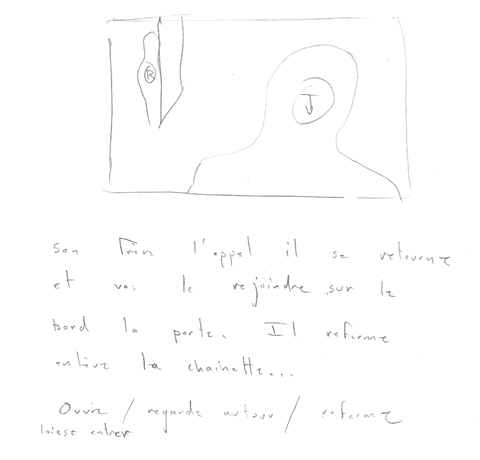 R
J
son frèr l'appel il se retourne
et vas le rejoindre sur le
bord la porte. Il referme
enlève la chainette...
Ouvre / regarde autour / referme
laisse entrer